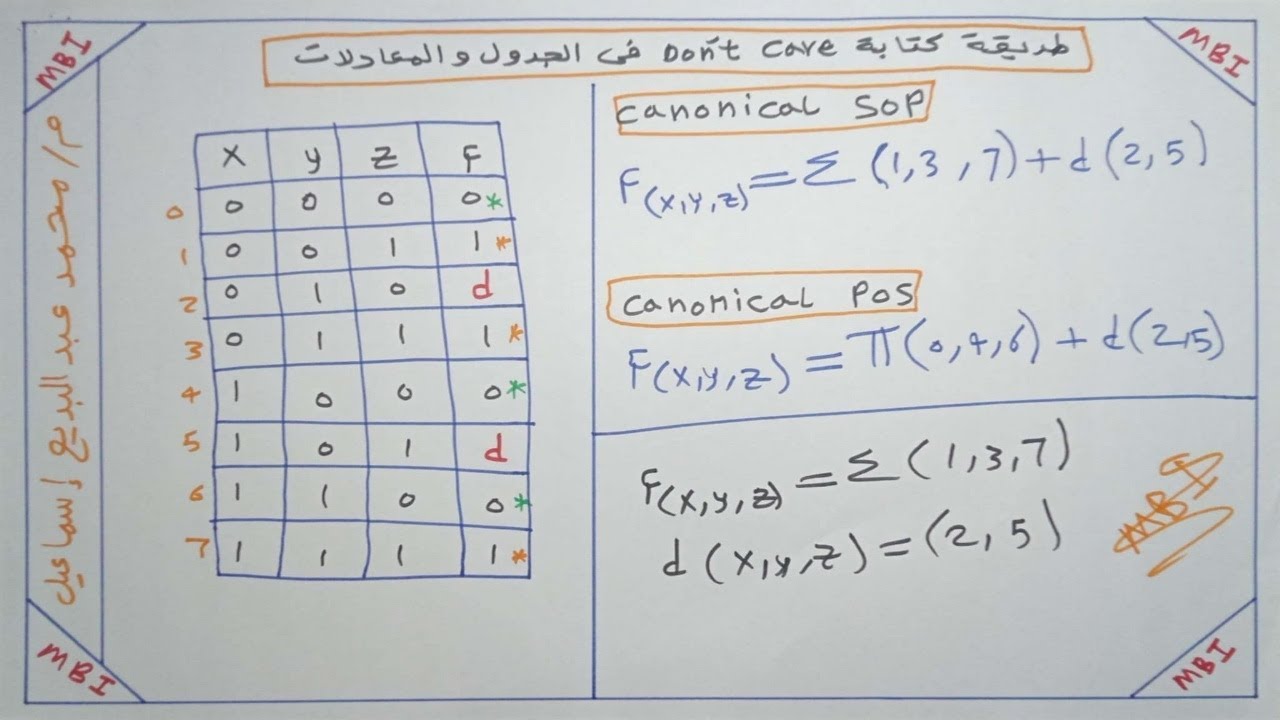 MBI
طريقة كتابة Don't Care في الجدول والمعادلات
MBI
م/ محمد عبد البديع إسماعيل
X y Z F
0 0 0 0 0*
1 0 0 1 1*
2 0 1 0 d
3 0 1 1 1*
4 1 0 0 0*
5 1 0 1 d
6 1 1 0 0*
7 1 1 1 1*
Canonical SOP
F(x,y,z) = Σ (1,3,7) + d(2,5)
Canonical POS
F(x,y,z) = π(0,4,6) + d(2,5)
F(x,y,z) = Σ (1,3,7)
d(x,y,z) = (2,5)
MBI
MBI
MBI